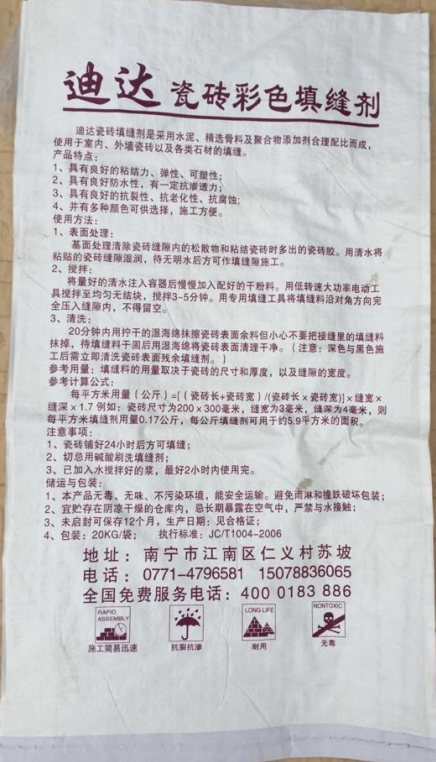 迪达 瓷砖彩色填缝剂
迪达瓷砖填缝剂是采用水泥、精选骨料及聚合物添加剂合理配比而成，
使用于室内、外墙瓷砖以及各类石材的填缝。
产品特点：
1、具有良好的粘结力、弹性、可塑性；
2、具有良好防水性，有一定抗渗透力；
3、具有良好的抗裂性、抗老化性、抗腐蚀；
4、并有多种颜色可供选择，施工方便。
使用方法：
1、表面处理：
基面处理清除瓷砖缝隙内的松散物和粘结瓷砖时多出的瓷砖胶。用清水将
粘贴的瓷砖缝隙湿润，待无明水后方可作填缝隙施工。
2、搅拌：
将量好的清水注入容器后慢慢加入配好的干粉料。用低转速大功率电动工
具搅拌至均匀无结块，搅拌3-5分钟。用专用填缝工具将填缝料沿对角方向完
全压入缝隙内，不得留空。
3、清洗：
20分钟内用拧干的湿海绵抹擦瓷砖表面余料但小心不要把接缝里的填缝料
抹掉，待填缝料干固后用湿海绵将瓷砖表面清理干净。（注意：深色与黑色施
工后需立即清洗瓷砖表面残余填缝剂。）
参考用量：填缝料的用量取决于瓷砖的尺寸和厚度，以及缝隙的宽度。
参考计算公式：
每平方米用量（公斤）=[（瓷砖长+瓷砖宽）/(瓷砖长×瓷砖宽)]×缝宽×
缝深×1.7 例如：瓷砖尺寸为200×300毫米，缝宽为3毫米，缝深为4毫米，则
每平方米填缝剂用量0.17公斤，每公斤填缝剂可用于约5.9平方米的面积。
注意事项：
1、瓷砖铺好24小时后方可填缝；
2、切忌用碱酸刷洗填缝剂；
3、已加入水搅拌好的浆，最好2小时内使用完。
储运与包装：
1、本产品无毒、无味、不污染环境，能安全运输。避免雨淋和撞跌破坏包装；
2、宜贮存在阴凉干燥的仓库内，忌长期暴露在空气中，严禁与水接触；
3、未启封可保存12个月，生产日期：见合格证；
4、包装：20KG/袋； 执行标准：JC/T1004-2006
地址：南宁市江南区仁义村苏坡
电话：0771-4796581 15078836065
全国免费服务电话：400 0183 886
RAPID ASSEMBLY LONG LIFE NONTOXIC
施工简易迅速 抗裂抗渗 耐用 无毒